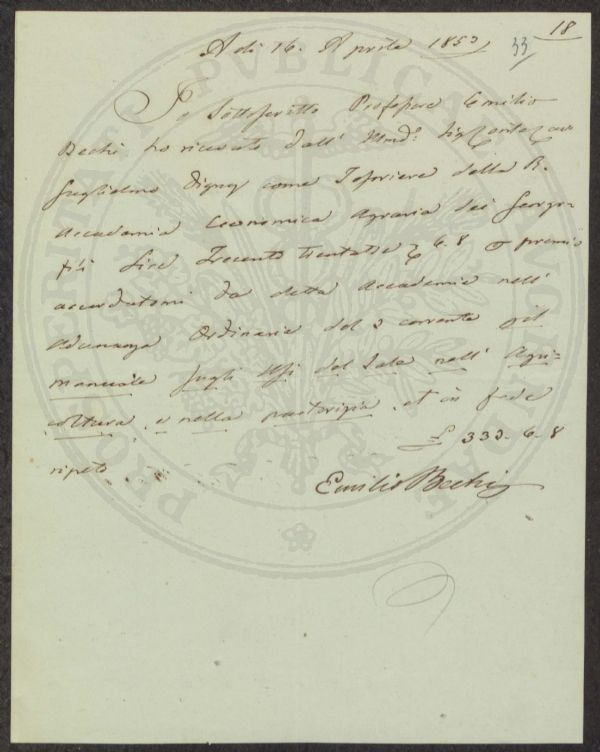 18
33
A di 16. Aprile 1853
Io Sottoscritto Professore Emilio
Bechi ho ricevuto dall' Illmo. Sig.
Guglielmo Digny come Tesoriere della R.
Accademia Economica Agraria dei Georgo-
fili Lire Trecento trentatre 6.8 premio
accordatomi da detta Accademia nell'
adunanza Ordinaria del 3 corrente pil
manuale sugli Usi del Sale nell' Agri-
coltura, e nella pastorizia, et in fede
£ 333.6.8
ripeto
Emilio Bechi
PROSPERITATI PUBLICAE AUGENDAE